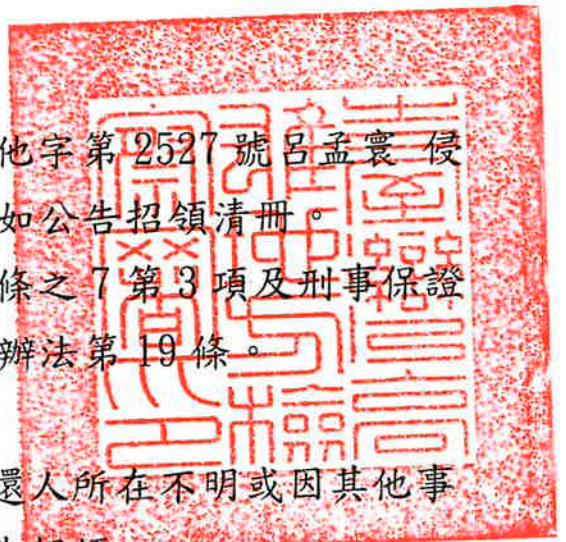 他字第 2527 號呂孟寰 侵
如公告招領清冊。
條之 7 第 3 項及刑事保證
辦法第 19 條。
還人所在不明或因其他事
臺灣高雄地方檢察署印